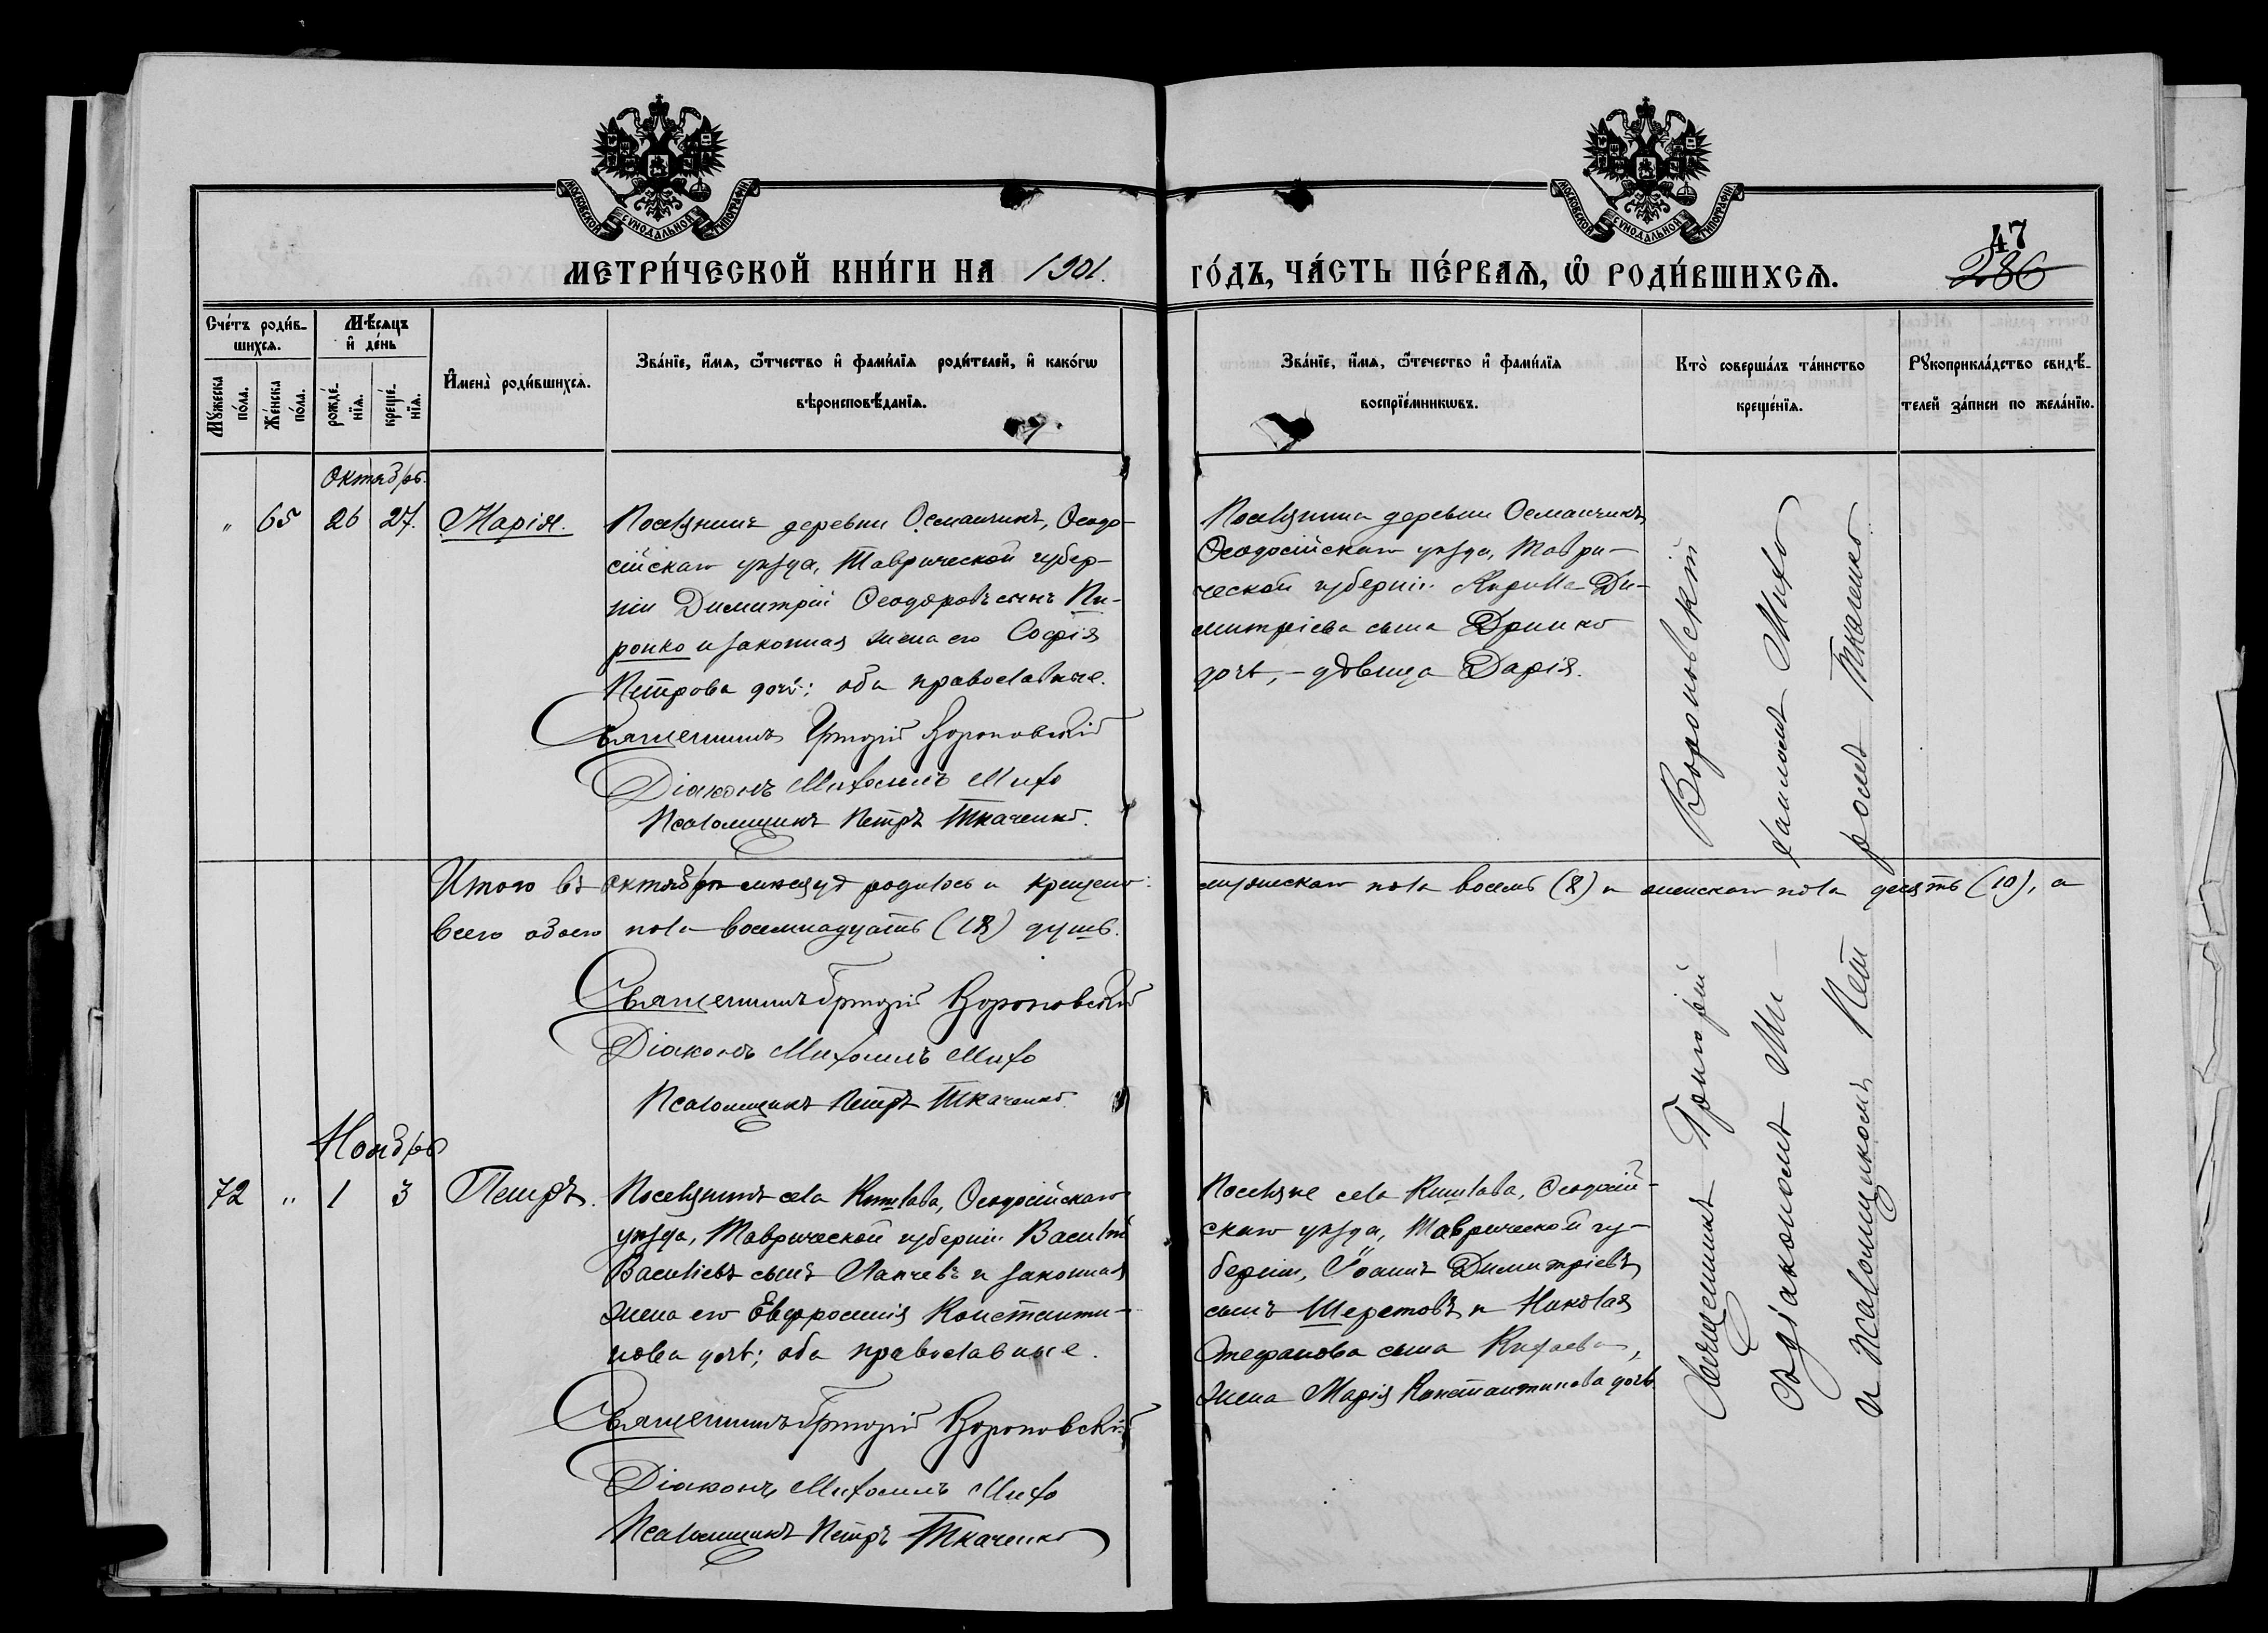 МОСКОВСКОЙ СУНОДАЛЬНОЙ ТИПОГРАФІИ
МОСКОВСКОЙ СУНОДАЛЬНОЙ ТИПОГРАФІИ
47
286
МЕТРИ́ЧЕСКОЙ КНИ́ГИ НА 1901. ГО́ДЪ, ЧА́СТЬ ПЕ́РВАѦ, Ѡ РОДИ́ВШИХСѦ.
Сче́тъ роди́в-
шихсѧ.
Мꙋжеска
по́ла.
Же́нска
по́ла.
Мѣ́сѧцъ
и҆ де́нь
рожде́-
нїѧ.
креще́-
нїѧ.
И҆мена̀ роди́вшихсѧ.
Зва́нїе, и҆́мѧ, ѻ҆́тчество и҆ фами́лїѧ роди́телей, и҆ како́гѡ
вѣроисповѣ́данїѧ.
Зва́нїе, и҆́мѧ, ѻ҆те́чество и҆ фами́лїѧ
воспрїе́мникѡвъ.
Кто̀ соверша́лъ та́инство
креще́нїѧ.
Рꙋкоприкла́дство свидѣ́-
телей за́писи по жела́нїю.
Октябрь.
" 65 26 27. Марія.
Поселянинъ деревни Османчикъ, Ѳеодо-
сійскаго уѣзда, Таврической губер-
ніи Димитрій Ѳеодоровъ сынъ Пи-
ронко и законная жена его Софія
Петрова дочь; оба православные.
Священникъ Григорій Вороновскій
Діаконъ Михаилъ Михо
Псаломщикъ Петръ Ткаченко.
Поселянина деревни Османчикъ,
Ѳеодосійскаго уѣзда, Таври-
ческой губерніи Кирилла Ди-
митріева сына Дринко
дочь, - дѣвица Дарія.
Итого въ октябрѣ мѣсяцѣ родилось и крещено: мужескаго пола восемь (8) и женскаго пола десять (10), а
всего обоего пола восемнадцать (18) душъ.
Священникъ Григорій Вороновскій
Діаконъ Михаилъ Михо
Псаломщикъ Петръ Ткаченко.
Ноябрь
72 " 1 3 Петръ.
Поселянинъ села Кишлава, Ѳеодосійскаго
уѣзда, Таврической губерніи Василій
Васильевъ сынъ Лапчевъ и законная
жена его Евфросинія Константи-
нова дочь; оба православные.
Священникъ Григорій Вороновскій
Діаконъ Михаилъ Михо
Псаломщикъ Петръ Ткаченко
Поселяне села Кишлава, Ѳеодосій-
скаго уѣзда, Таврической гу-
берніи, Іоаннъ Димитріевъ
сынъ Шеретовъ и Николая
Стефанова сына
жена Марія Константинова дочь.
Священникъ Григорій Вороновскій
съ діакономъ Ми-хаиломъ Михо
и псаломщикомъ Петромъ Ткаченко